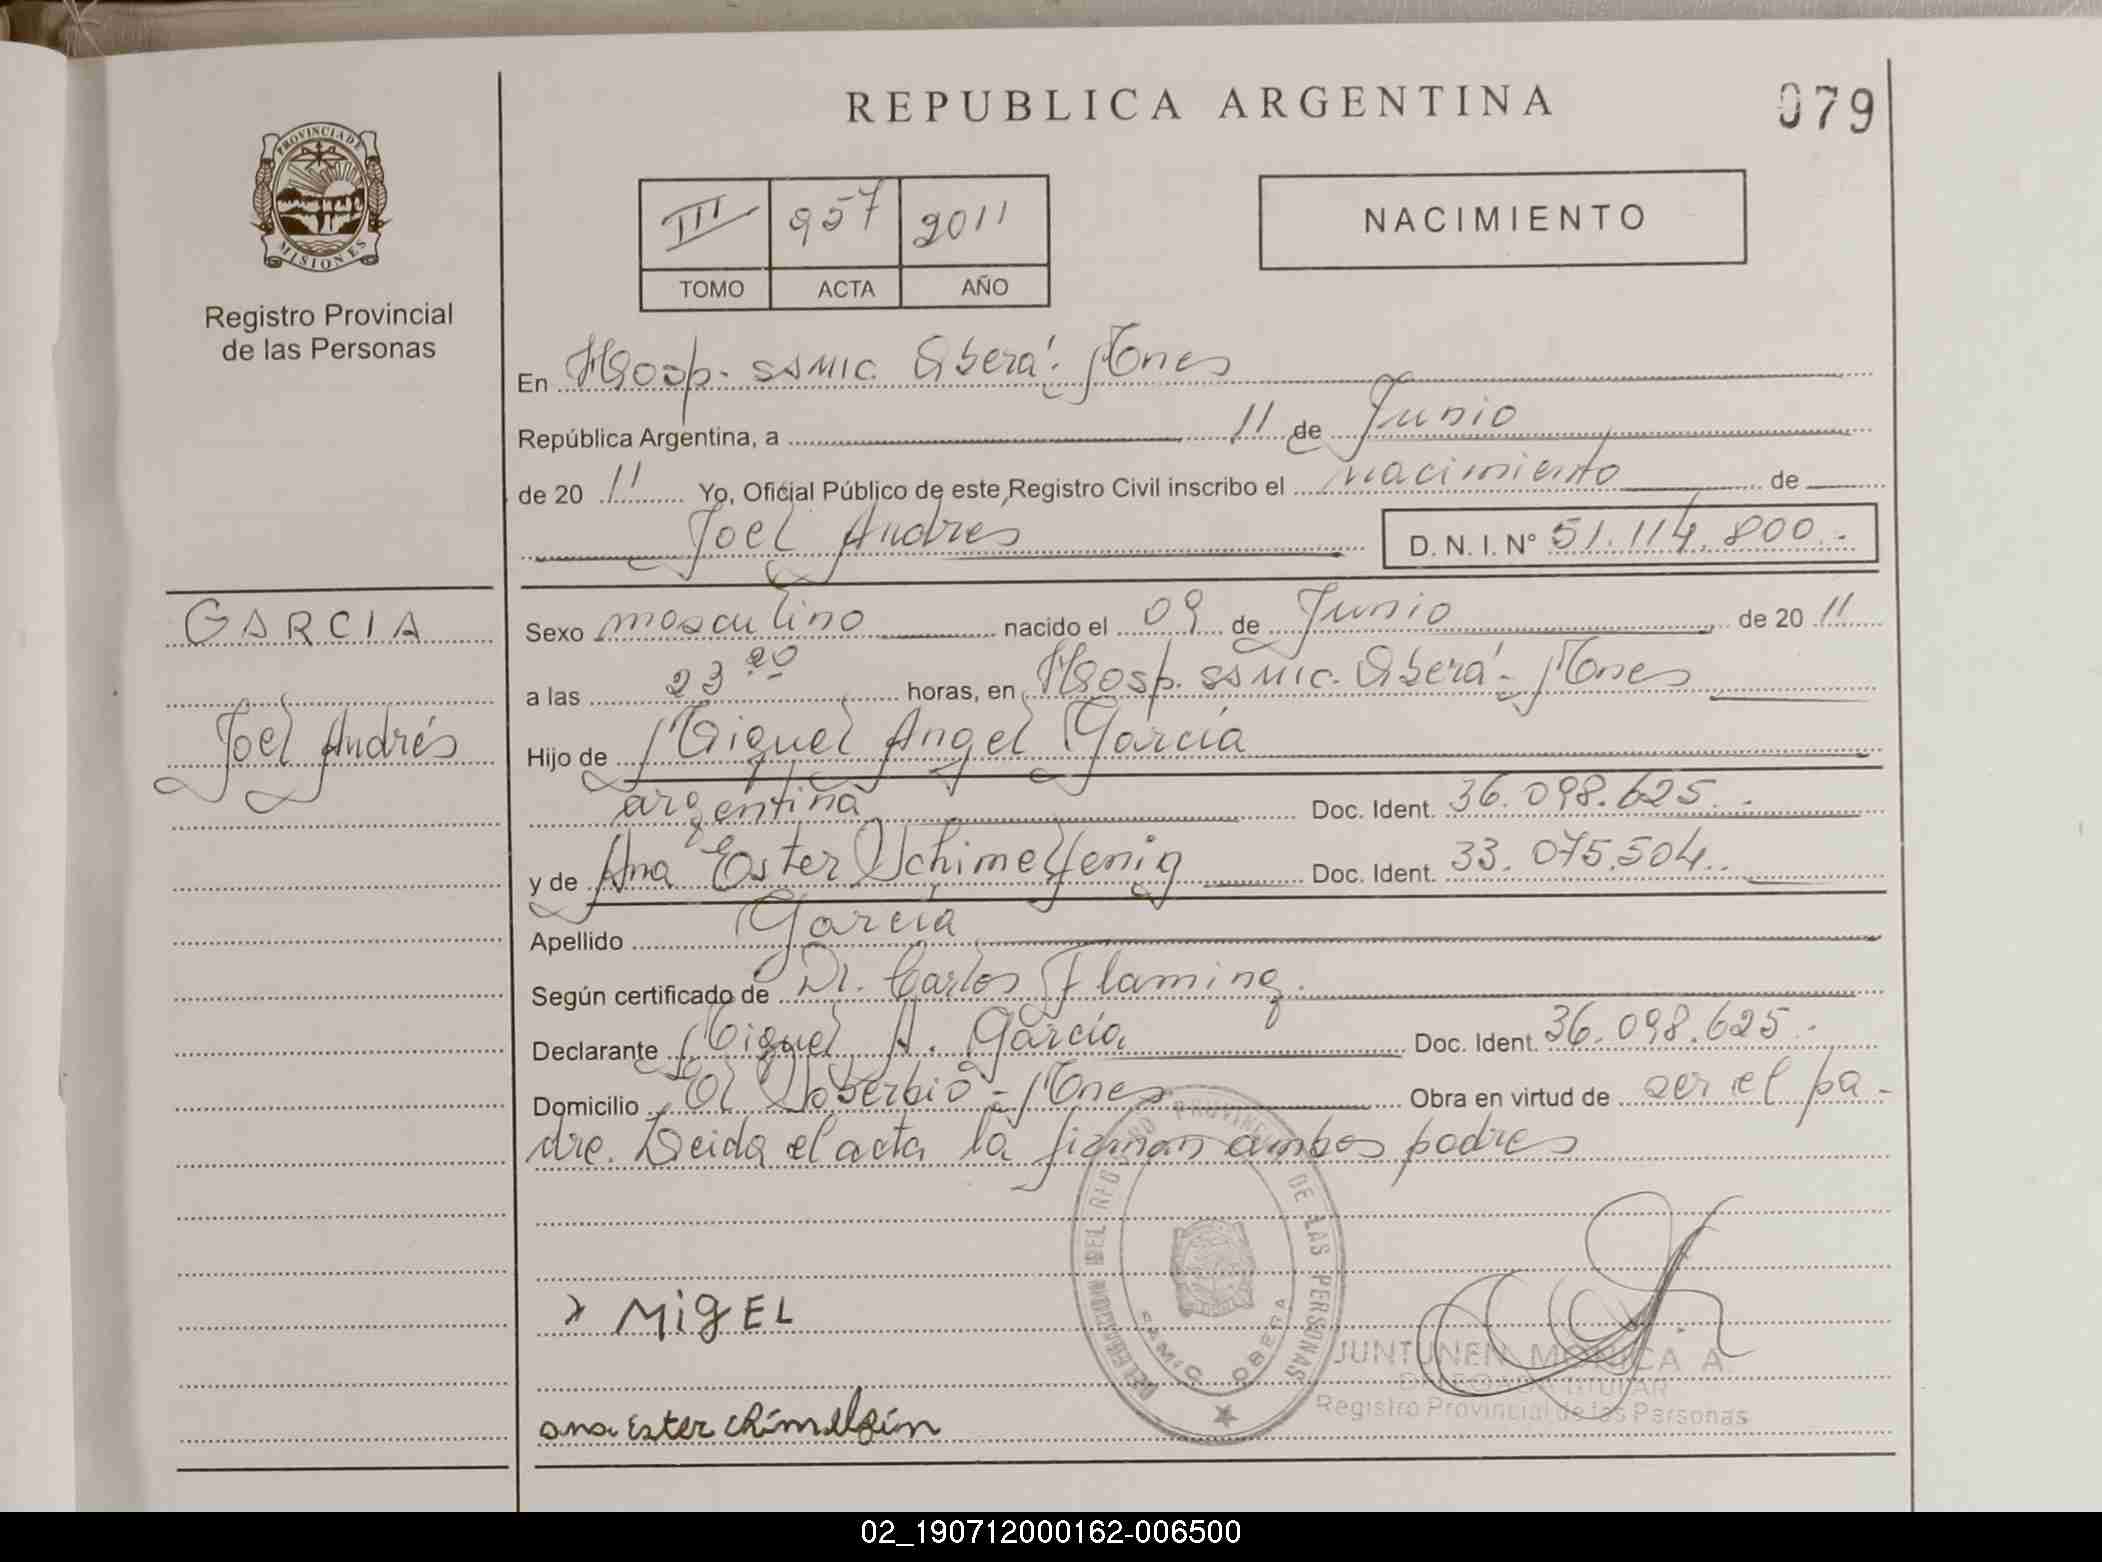 REPUBLICA ARGENTINA
079
PROVINCIA DE MISIONES
Registro Provincial
de las Personas
III 957 2011
TOMO ACTA AÑO
NACIMIENTO
En Hosp. SAMIC. Oberá. Mnes
República Argentina, a 11 de Junio
de 20 11 Yo, Oficial Público de este Registro Civil inscribo el nacimiento de
Joel Andres
D. N. I. N° 51.114.800.-
GARCIA
Joel Andrés
Sexo masculino nacido el 09 de Junio de 20 11
a las 23 20 horas, en Hosp. SAMIC. Oberá - Mnes
Hijo de Miguel Angel García
argentina Doc. Ident. 36.098.625.-
y de Ana Ester Schimelfenig Doc. Ident. 33.075.504.
Apellido García
Según certificado de Dr. Carlos Flaming.
Declarante Miguel A. García Doc. Ident. 36.098.625.
Domicilio El Soberbio - Mnes Obra en virtud de ser el pa-
dre. Leida el acta la firman ambos padres
DELEGACION DEL REGISTRO PROVINCIAL DE LAS PERSONAS
SAMIC OBERA
x MigEL
JUNTUNEN MONICA A
DELEGADA TITULAR
Registro Provincial de las Personas
ana Ester chimelfin
02_190712000162-006500